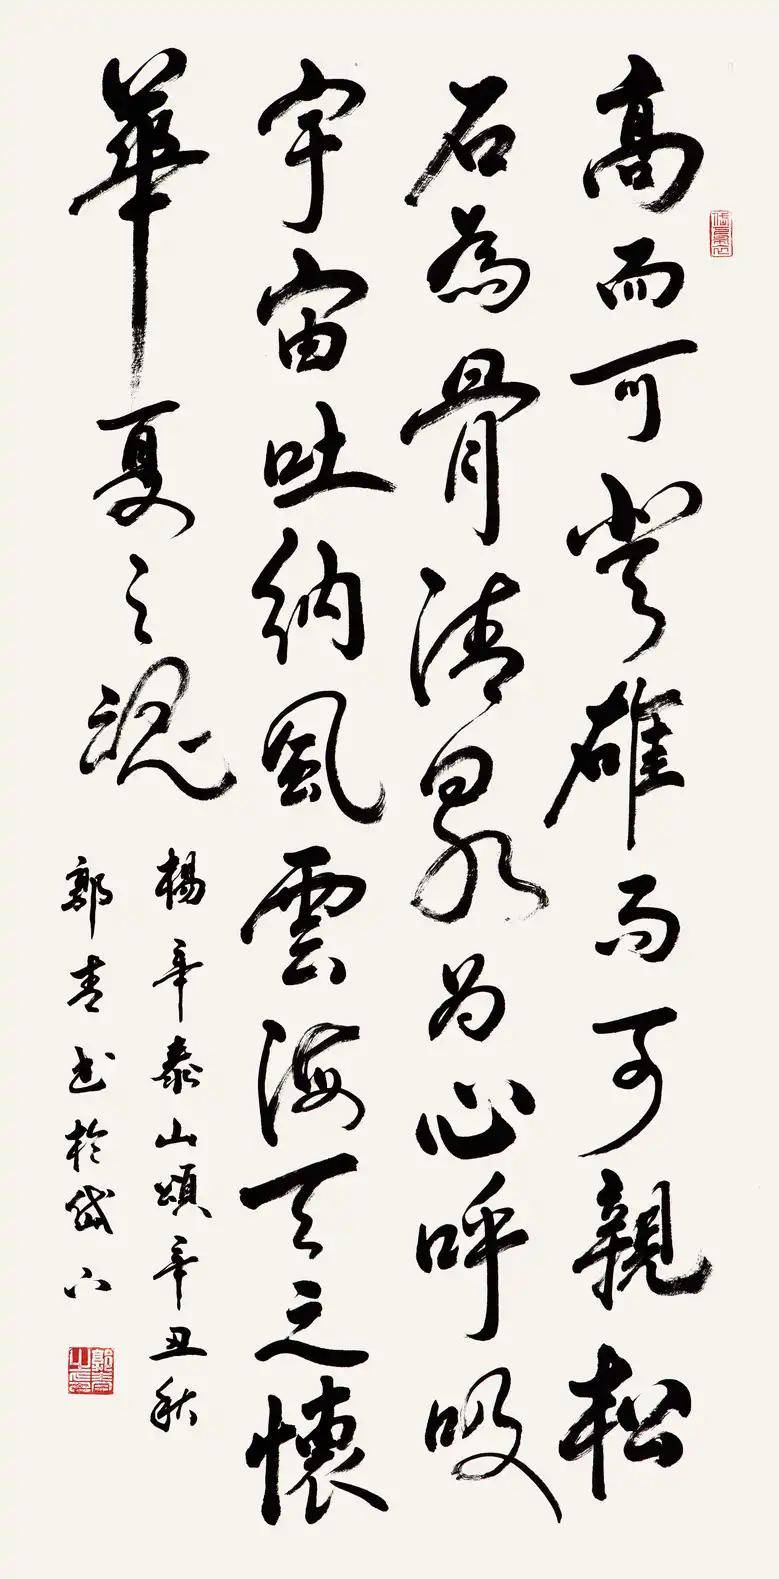 高而可登雄而可親松
石為骨清泉为心呼吸
宇宙吐納風雲海天之懷
華夏之魂
楊辛泰山頌辛丑秋
郭青书於岱下